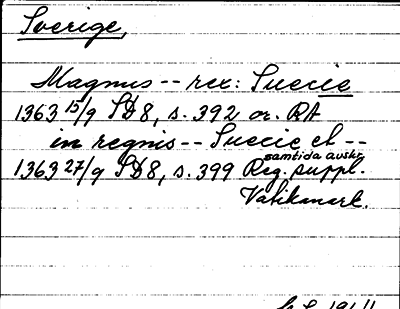 Sverige,
Magnus -- rex: Suecie
1363 15/9 SD8, s. 392 or. RA
in regnis -- Suecie et --
samtida avskr.
1363 27/9 SD8, s. 399 Reg. suppl.
Vatikanark.